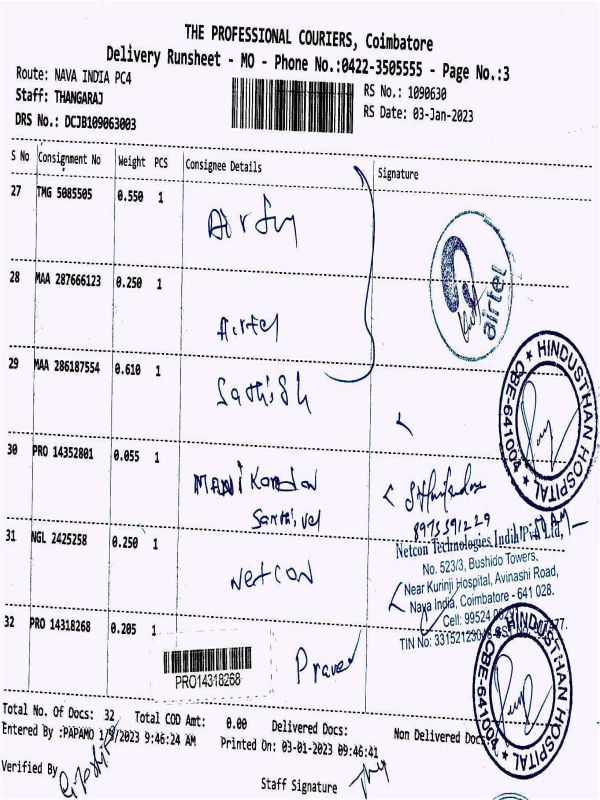 THE PROFESSIONAL COURIERS, Coimbatore
Delivery Runsheet - MO - Phone No.:0422-3505555 - Page No.:3
Route: NAVA INDIA PC4
RS No.: 1090630
Staff: THANGARAJ
RS Date: 03-Jan-2023
DRS No.: DCJB109063003
S No Consignment No Weight PCS Consignee Details Signature
27 TMG 5085505 0.550 1
28 MAA 287666123 0.250 1 Airtel
airtel
29 MAA 286187554 0.610 1 Sathish
HINDUSTHAN HOSPITAL
CBE-641004
30 PRO 14352801 0.055 1 MANIKandan
Sakthivel
8973591229
31 NGL 2425258 0.250 1 Netcon
Netcon Technologies India Pvt Ltd,
No. 523/3, Bushido Towers,
Near Kurinji Hospital, Avinashi Road,
Nava India, Coimbatore - 641 028.
Cell: 99524
TIN No:
32 PRO 14318268 0.205 1 Praveen
PRO14318268
HINDUSTHAN HOSPITAL
CBE-641004
Total No. Of Docs: 32 Total COD Amt: 0.00 Delivered Docs: Non Delivered Docs:
Entered By :PAPAMO 1/3/2023 9:46:24 AM Printed On: 03-01-2023 09:46:41
Verified By
Staff Signature